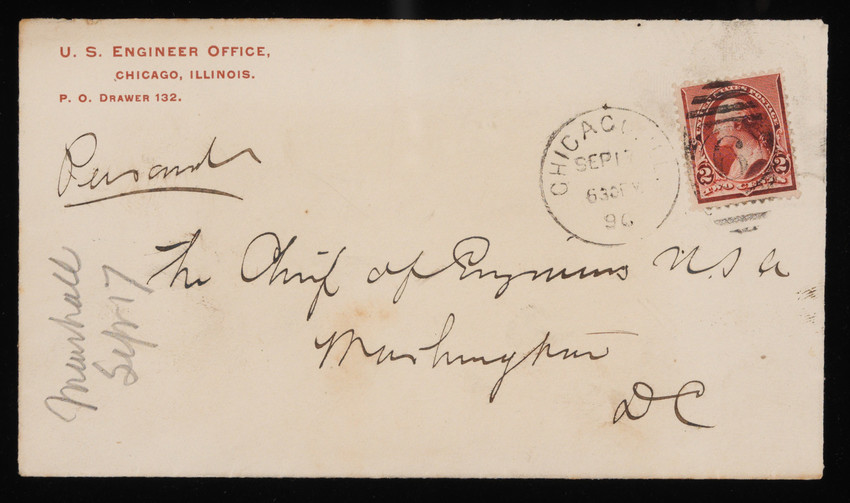 U. S. ENGINEER OFFICE,
CHICAGO, ILLINOIS.
P. O. DRAWER 132.
Personal
CHICAGO, ILL.
SEP 17
630 PM
90
2 2
The Chief of Engineers U.S.A
Washington
D C
Marshall
Sep 17